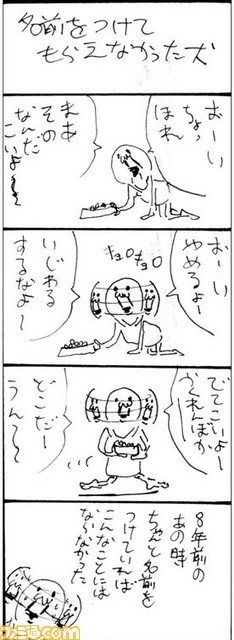 名前をつけて
もらえなかった犬
おーい
ちょっ
ほれ
まあ
その
なんだ
こいよ〜
おーい
やめろよ〜
キョロキョロ
いじわる
するなよ〜
でてこいよ〜
かくれんぼか
どこだー
うんて〜
8年前の
あの時
ちゃんと名前を
つけていれば
こんなことには
ならなかった
ファミ通.com